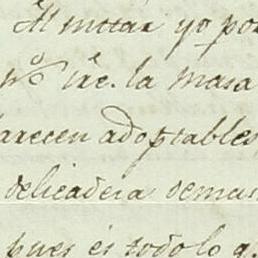 Al mirar yo por
tre. la masa
parecen adoptables
delicadeza demas
pues es todo lo q.